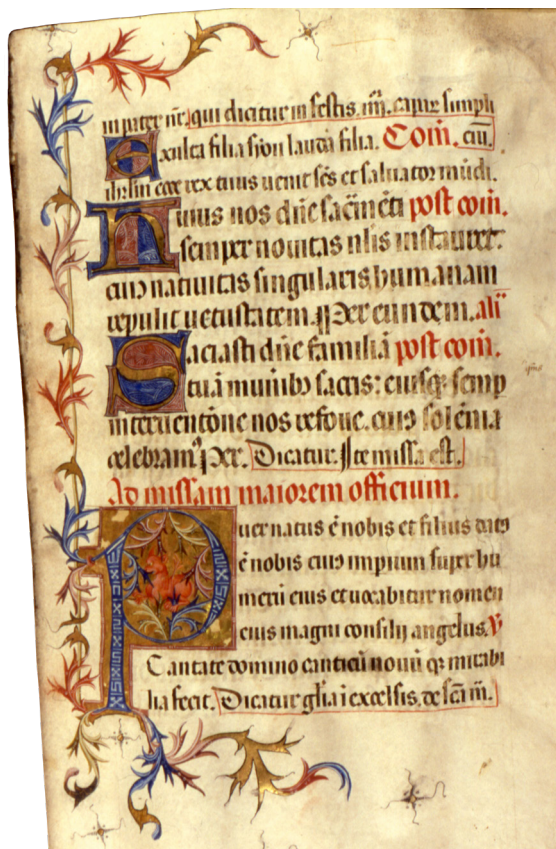 in pater nr̄. qui dicitur in festis. iiij. capis simpli
Exulta filia syon lauda filia. Com̄. ciū.
ihrl̄m ecce rex tuus uenit sc̄s et saluator mūdi.
Huius nos dn̄e sac̄mēti post com̄.
semper nouitas nl̄is instauret:
cuiꝰ natiuitas singularis humanam
repulit uetustatem. ¶ Per eundem. ali͞
Saciasti dn̄e familiā post com̄.
tuā munibꝫ sacris: eiusqꝫ semp
interuentōne nos refoue. cuiꝰ solēnia
celebramꝰ ¶ Per. Dicatur. ¶ Ite missa est.
Ad missam maiorem officium.
Puer natus ē nobis et filius datꝰ
ē nobis cuiꝰ impium super hu
merū eius et uocabitur nomen
eius magni consilij angelus. V̄
Cantate domino canticū nouū qꝫ mirabi
lia fecit. Dicatur gl̄ia i excelsis. de sc̄a m̄.